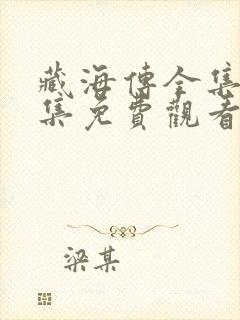 藏海傳全集
集免費觀看
梁某